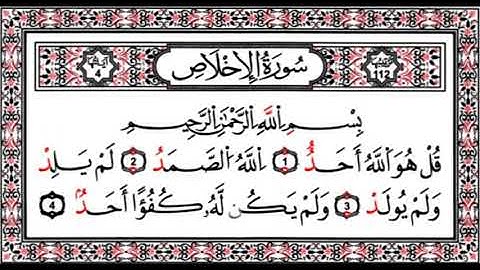 سُورَةُ الإِخْلَاصِ
بِسْمِ اللَّهِ الرَّحْمَٰنِ الرَّحِيمِ
قُلْ هُوَ اللَّهُ أَحَدٌ 1 اللَّهُ الصَّمَدُ 2 لَمْ يَلِدْ
وَلَمْ يُولَدْ 3 وَلَمْ يَكُن لَّهُۥ كُفُوًا أَحَدٌۢ 4